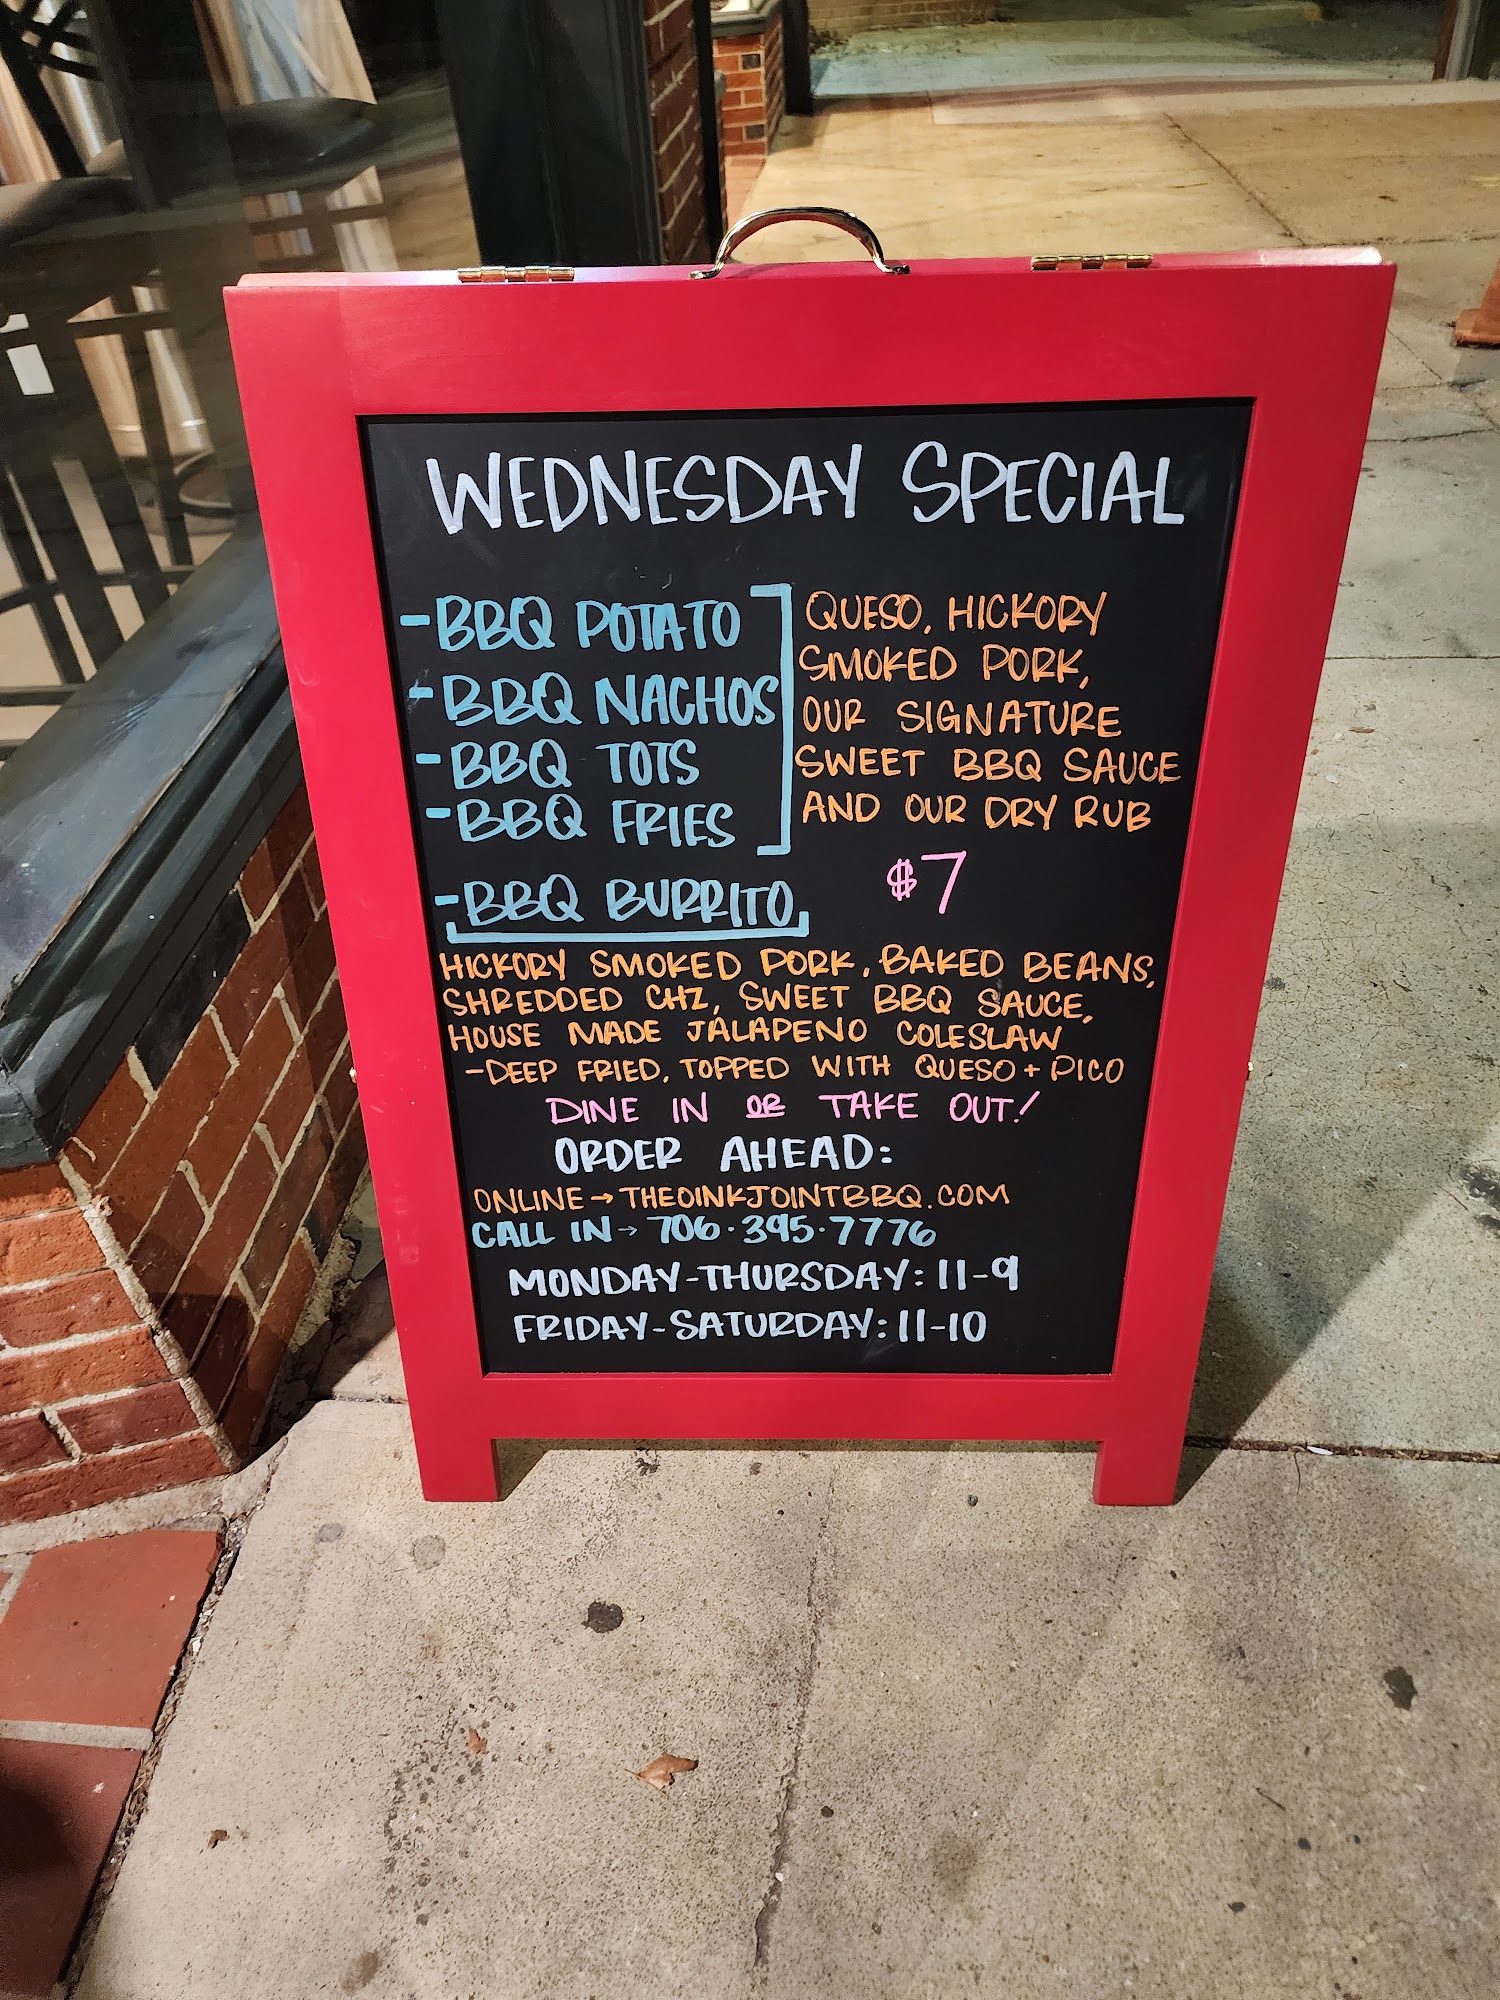 WEDNESDAY SPECIAL
-BBQ POTATO
-BBQ NACHOS
-BBQ TOTS
-BBQ FRIES
QUESO, HICKORY
SMOKED PORK,
OUR SIGNATURE
SWEET BBQ SAUCE
AND OUR DRY RUB
$7
-BBQ BURRITO
HICKORY SMOKED PORK, BAKED BEANS,
SHREDDED CHZ, SWEET BBQ SAUCE,
HOUSE MADE JALAPENO COLESLAW
-DEEP FRIED, TOPPED WITH QUESO + PICO
DINE IN OR TAKE OUT!
ORDER AHEAD:
ONLINE → THEOINKJOINTBBQ.COM
CALL IN → 706·395·7776
MONDAY-THURSDAY: 11-9
FRIDAY-SATURDAY: 11-10